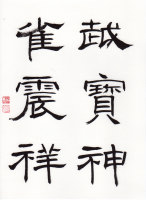 越寶神
雀震祥